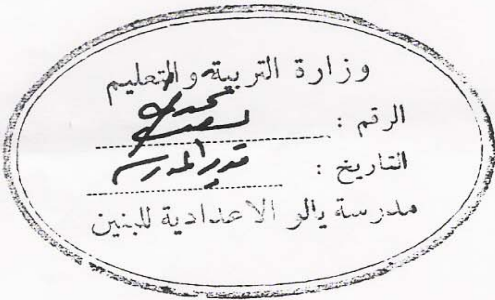 وزارة التربية والتعليم
الرقم :
التاريخ : مدير المدرسة
مدرسة يالو الاعدادية للبنين